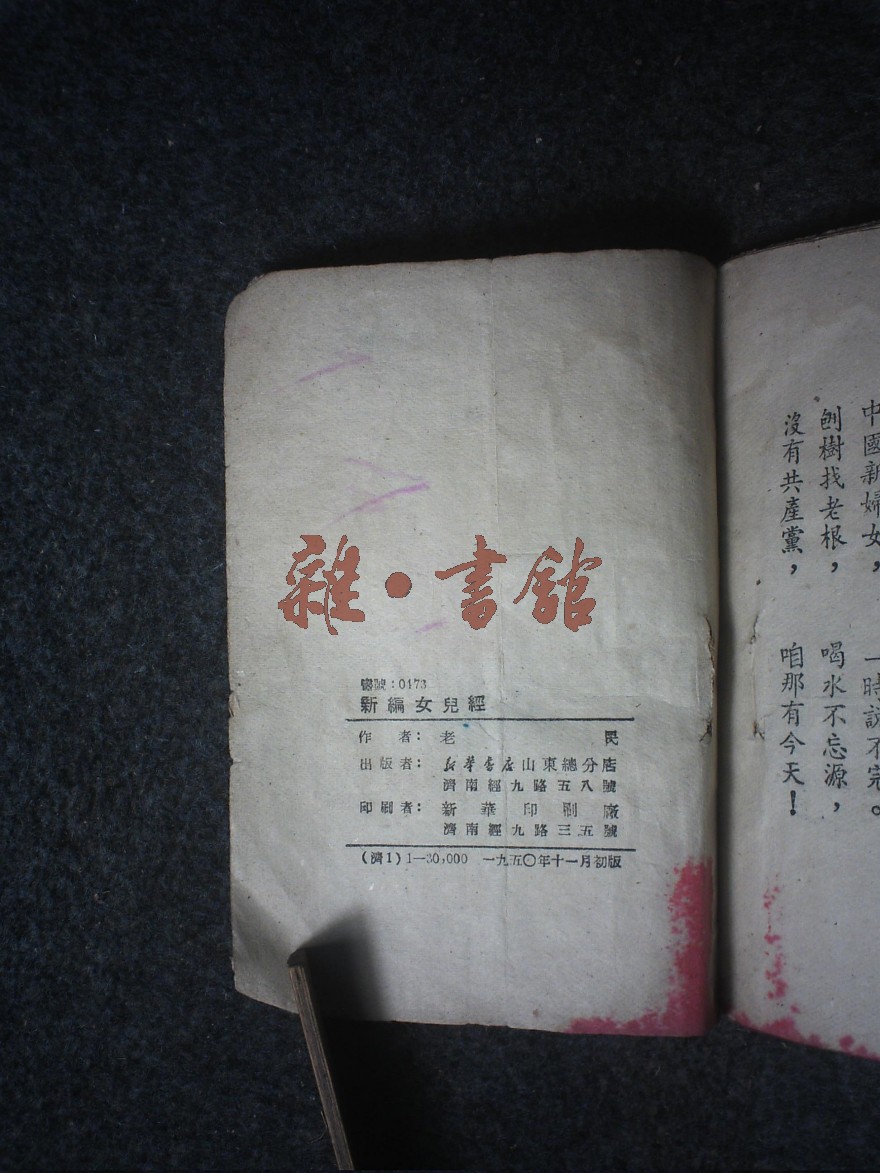 中國新婦女，一時説不完。
刨樹找老根，喝水不忘源，
沒有共產黨，咱那有今天！
雜·書館
書號：0473
新編女兒經
作者：老民
出版者：新華書店山東總分店
濟南經九路五八號
印刷者：新華印刷廠
濟南經九路三五號
(濟1) 1—30,000 一九五〇年十一月初版